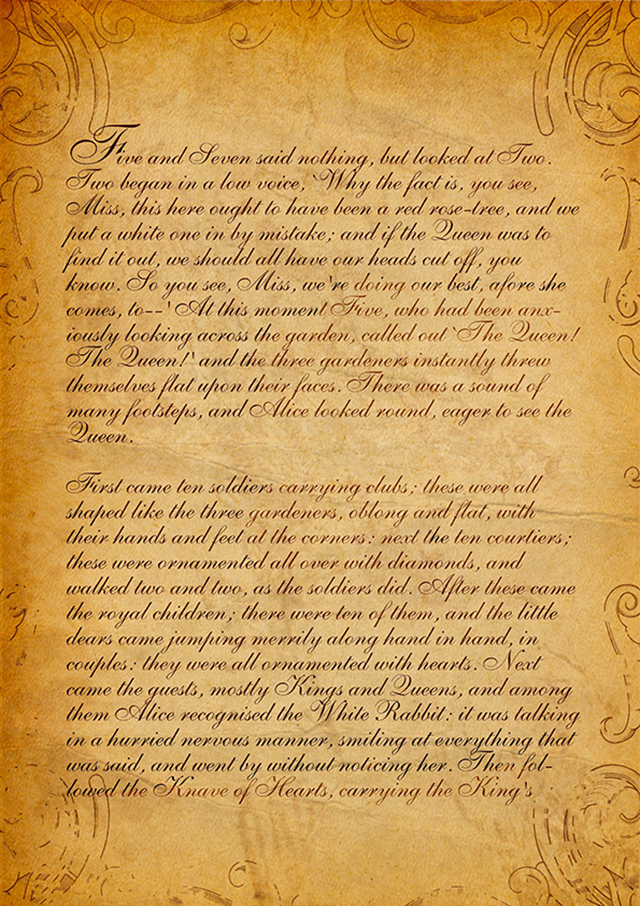 Five and Seven said nothing, but looked at Two.
Two began in a low voice, `Why the fact is, you see,
Miss, this here ought to have been a red rose-tree, and we
put a white one in by mistake; and if the Queen was to
find it out, we should all have our heads cut off, you
know. So you see, Miss, we're doing our best, afore she
comes, to--' At this moment Five, who had been anx-
iously looking across the garden, called out `The Queen!
The Queen!' and the three gardeners instantly threw
themselves flat upon their faces. There was a sound of
many footsteps, and Alice looked round, eager to see the
Queen.
First came ten soldiers carrying clubs; these were all
shaped like the three gardeners, oblong and flat, with
their hands and feet at the corners: next the ten courtiers;
these were ornamented all over with diamonds, and
walked two and two, as the soldiers did. After these came
the royal children; there were ten of them, and the little
dears came jumping merrily along hand in hand, in
couples: they were all ornamented with hearts. Next
came the guests, mostly Kings and Queens, and among
them Alice recognised the White Rabbit: it was talking
in a hurried nervous manner, smiling at everything that
was said, and went by without noticing her. Then fol-
lowed the Knave of Hearts, carrying the King's